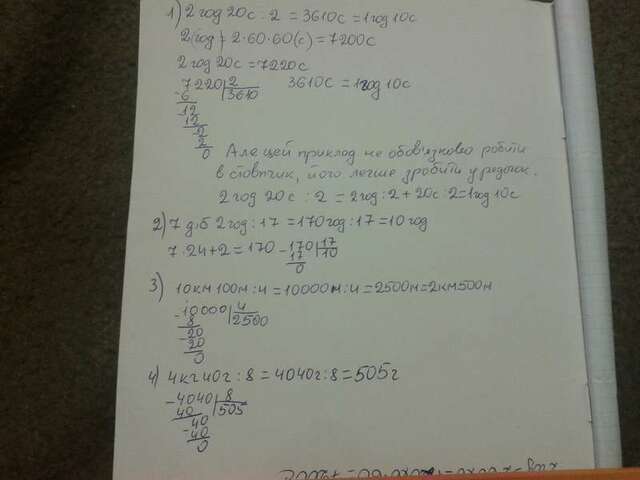 1) 2 год 20с : 2 = 3610с = 1год 10с
2(год) = 2·60·60(с) = 7200с
2 год 20с = 7220с
7220 | 2 3610с = 1год 10с
-6 3610
12
12
2
2
0
Але цей приклад не обовязково робити
в стовпчик, його легше зробити у рядочок.
2 год 20с : 2 = 2год : 2 + 20с : 2 = 1год 10с
2) 7 діб 2 год : 17 = 170 год : 17 = 10 год
7·24+2 = 170 -170 | 17
17 10
0
3) 10км 100м : 4 = 10000м : 4 = 2500м = 2км 500м
-10000 | 4
8 2500
-20
20
0
4) 4кг 40г : 8 = 4040г : 8 = 505г
-4040 | 8
40 505
-40
40
0